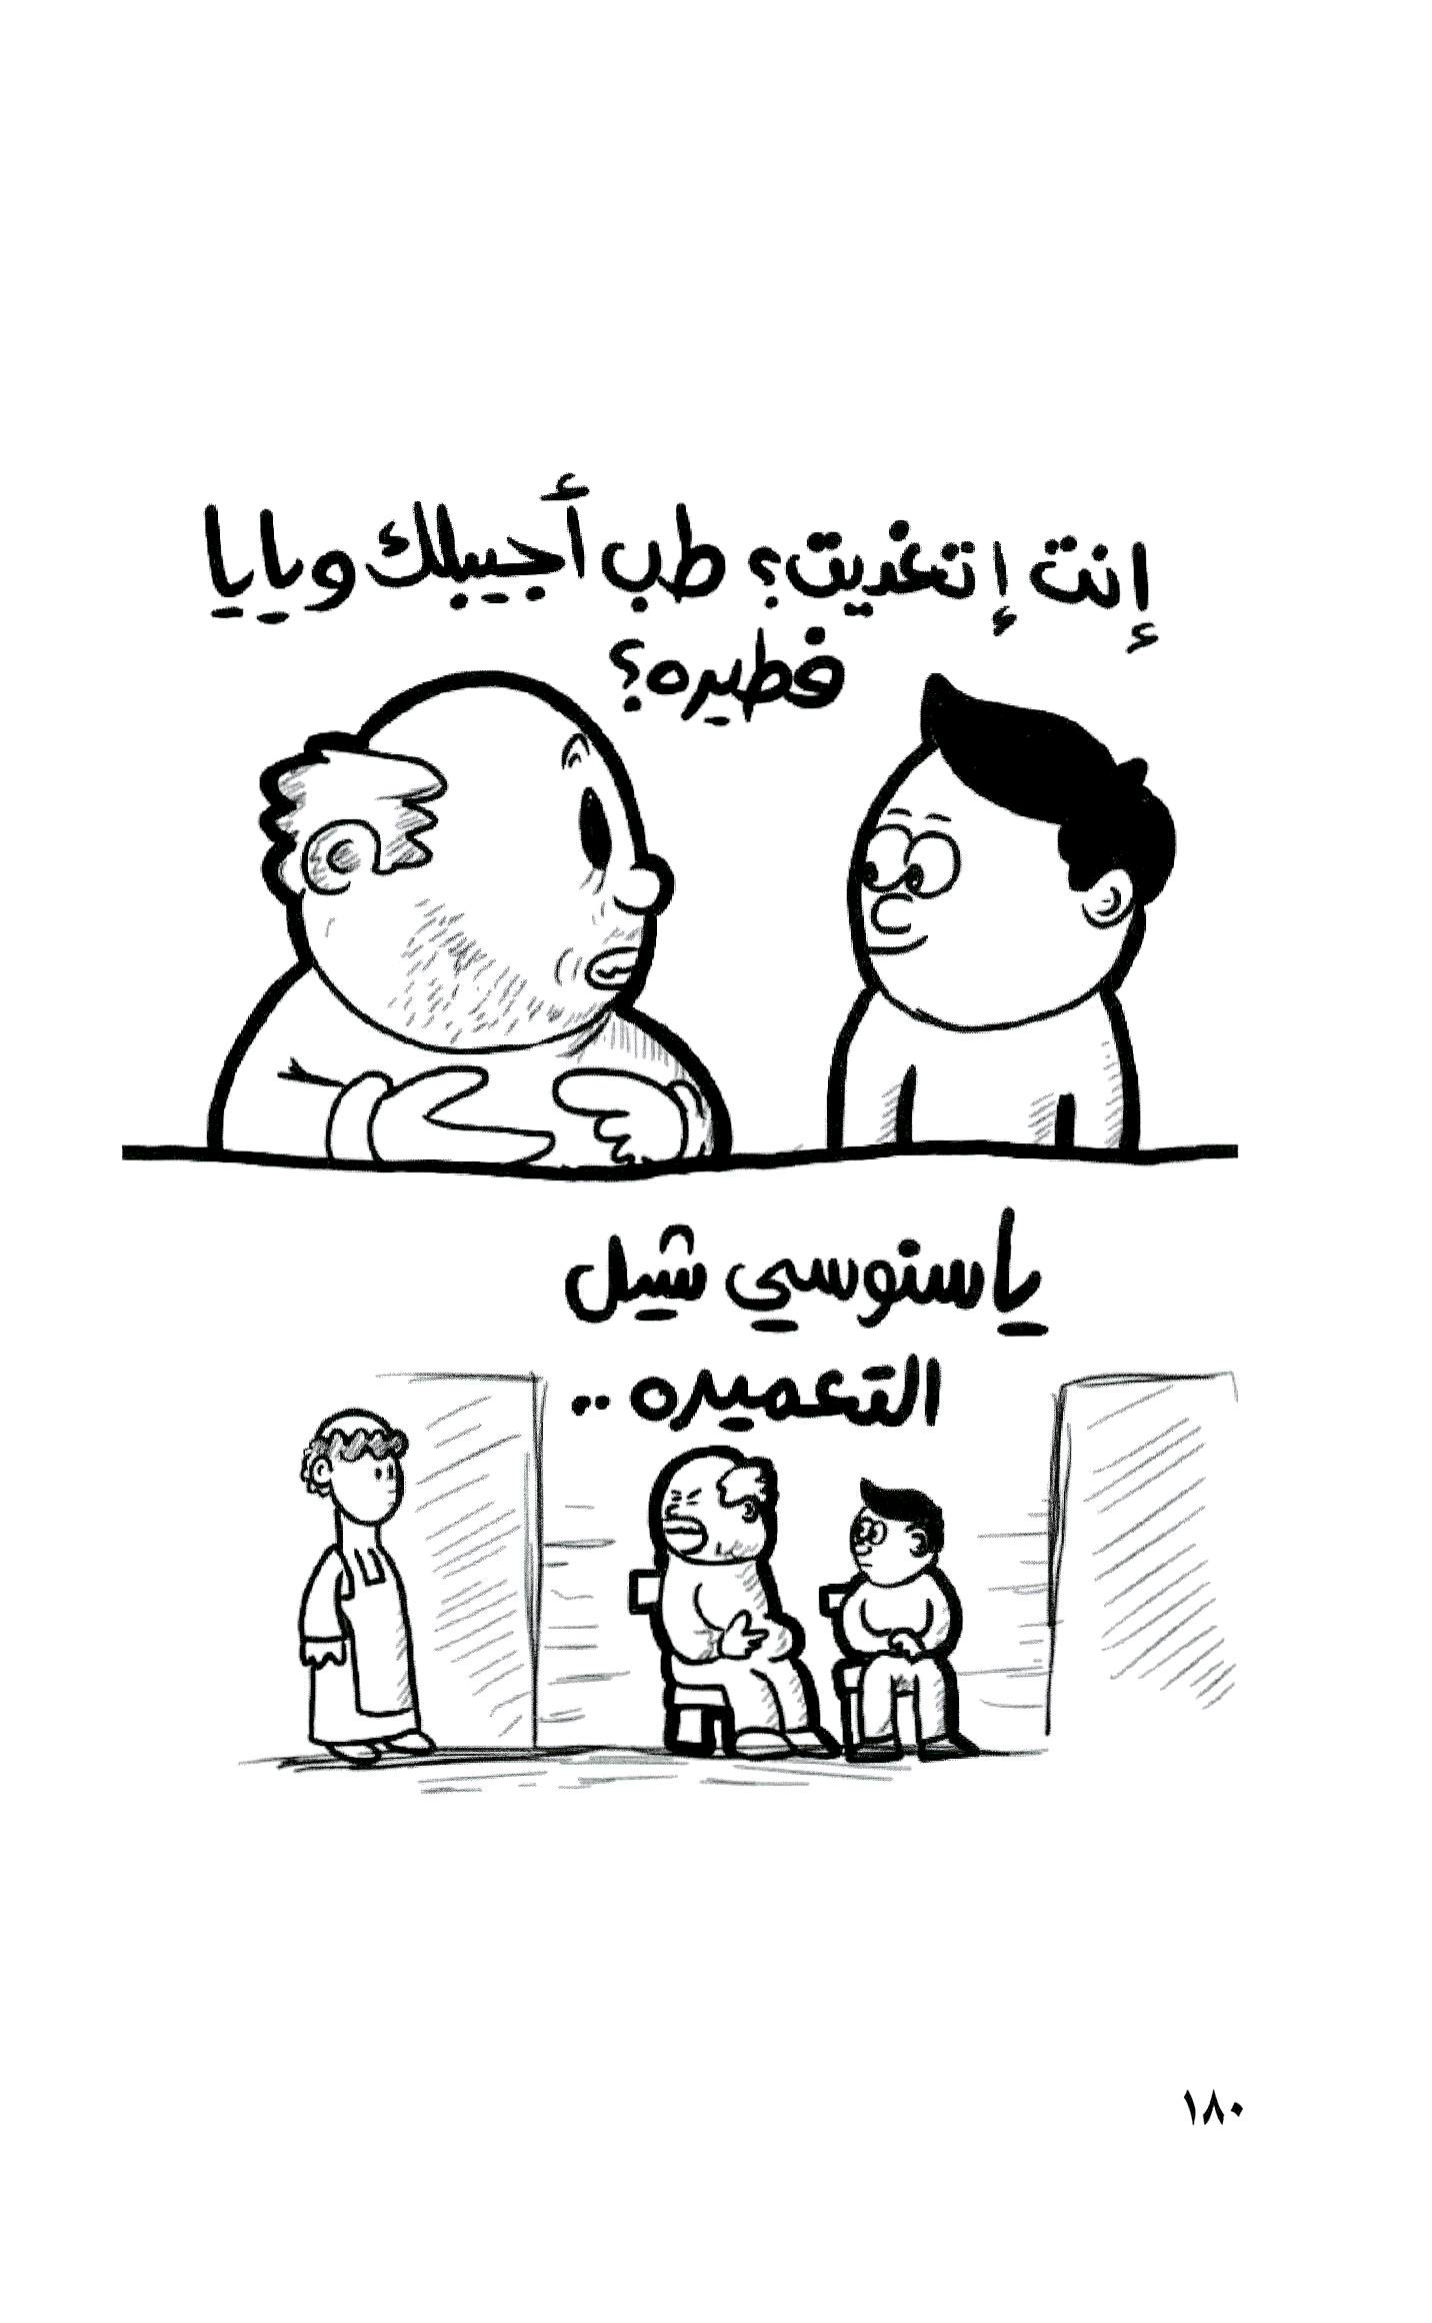 إنت إتغديت؟ طب أجيبلك ويايا
فطيره؟
ياسنوسي شيل
التعميره ..
١٨٠